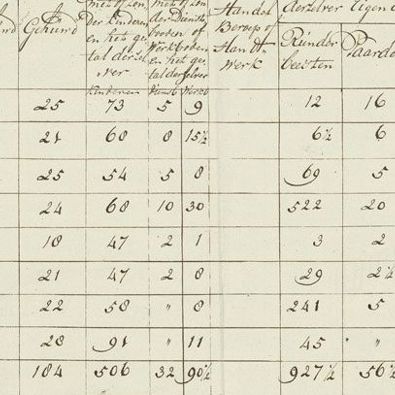 Gehuwd
der Kinderen
en het ge
tal derzel
ver
Kinderen
boden of
Werkboden
en het ge
tal derzelver
Handel
Beroep of
Handt
Werk
derzelver Eigen
Runder
beesten
Paarde
25 73 5 9 12 16
21 68 8 15½ 6½ 6
25 54 5 8 69 5
24 68 10 30 522 20
18 47 2 1 3 2
21 47 2 8 29 2½
22 58 " 8 241 5
28 91 " 11 45 "
184 506 32 90½ 927½ 56½